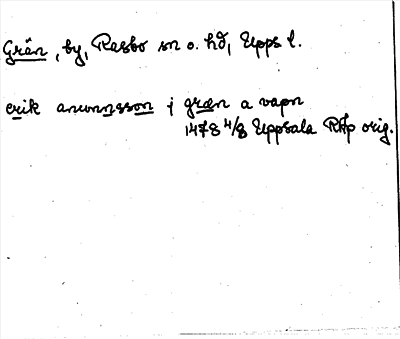 Grän, by, Rasbo sn o. hd, Upps l.
erik anunnsson j græn a vapn
1478 4/8 Uppsala RAp orig.